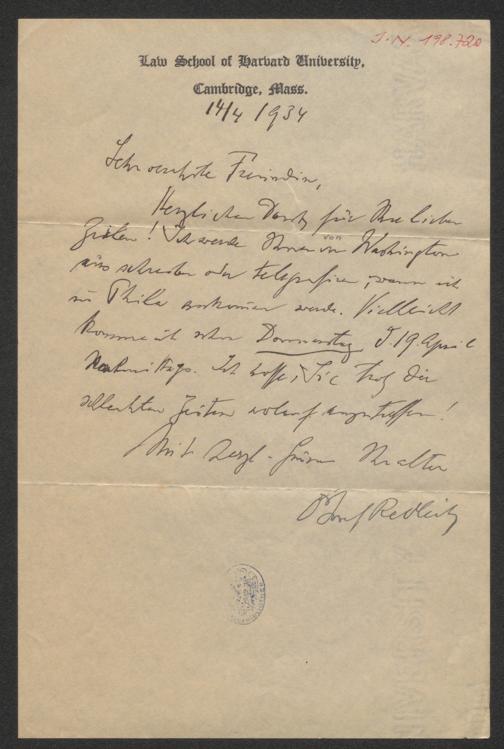 J.N. 198.720
Law School of Harvard University,
Cambridge, Mass.
14/4 1934
Sehr verehrte Freundin,
Herzlichen Dank für Ihre lieben
Zeilen! Ich werde Ihnen von Washington
aus schreiben oder telegrafieren, wann ich
in Phila ankommen werde. Vielleicht
komme ich schon Donnerstag d 19. April
Nachmittags. Ich hoffe, Sie trotz der
schlechten Zeiten wolauf anzutreffen!
Mit herzl. Grüßen Ihr alter
Josef Redlich